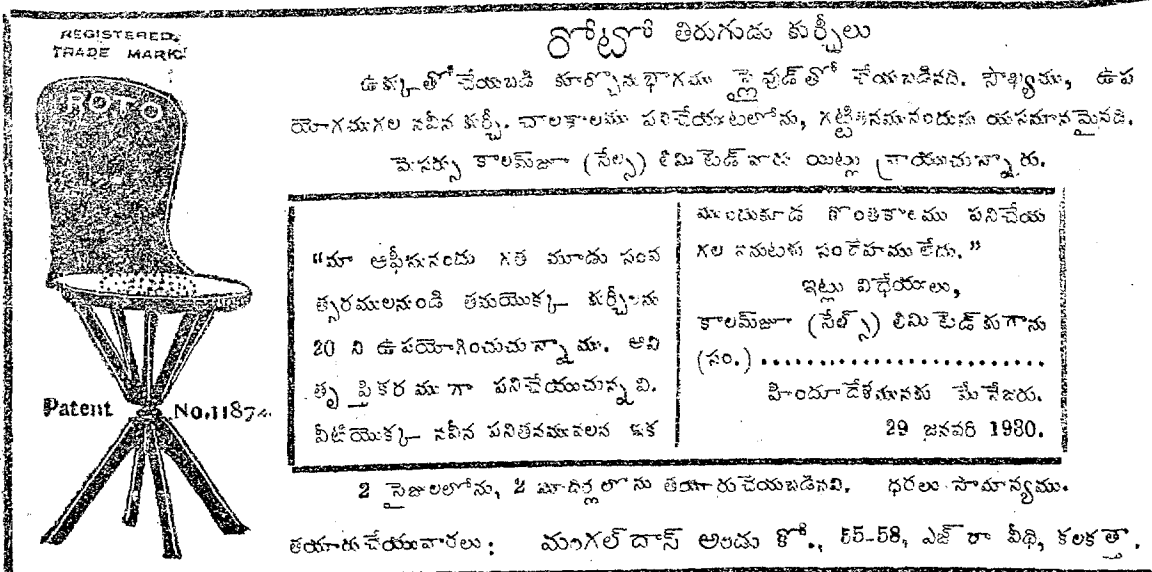 REGISTERED.
TRADE MARK.
ROTO
Patent No.1187
రోటో తిరుగుడు కుర్చీలు
ఉక్కుతో చేయబడి కూర్చొనుభాగము ప్లైవుడ్‌తో చేయబడినది. సౌఖ్యము, ఉప
యోగముగల నవీన కుర్చీ. చాలకాలము పనిచేయుటలోను, గట్టితనమునందును యసమానమైనది.
మెసర్సు కాలమ్‌జూ (సేల్సు) లిమిటెడ్ వారు యిట్లు వ్రాయుచున్నారు.
"మా ఆఫీసునందు గత మూడు సంవ
త్సరములనుండి తమయొక్క కుర్చీలను
20 ని ఉపయోగించుచున్నాము. అవి
తృప్తికరముగా పనిచేయుచున్నవి.
వీటియొక్క నవీన పనితనమువలన ఇక
ముందుకూడ కొంతకాలము పనిచేయ
గల వనుటకు సందేహములేదు."
ఇట్లు విధేయులు,
కాలమ్‌జూ (సేల్స్) లిమిటెడ్‌కుగాను
(సం.) ........................
హిందూదేశమునకు మేనేజరు.
29 జనవరి 1930.
2 సైజులలోను, 2 మాదిర్లలోను తయారుచేయబడినవి. ధరలు సామాన్యము.
తయారుచేయువారలు : మంగల్‌దాస్ అండు కో., 55-58, ఎజ్‌రా వీధి, కలకత్తా.